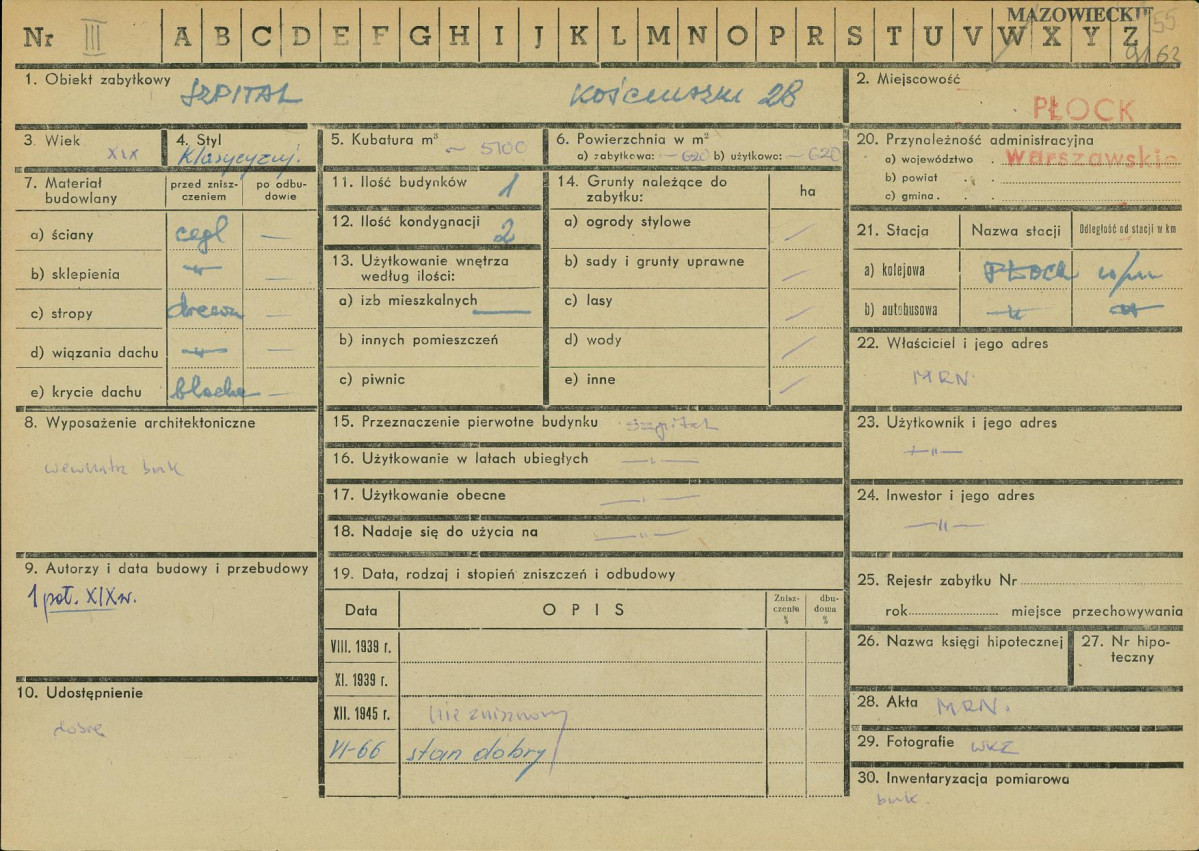 MAZOWIECKIE
Nr III A B C D E F G H I J K L M N O P R S T U V W X Y Z
55
9163
1. Obiekt zabytkowy
SZPITAL KOŚCIUSZKI 28
2. Miejscowość
PŁOCK
3. Wiek
XIX
4. Styl
Klasycyzuj.
5. Kubatura m³ ~ 5100
6. Powierzchnia w m²
a) zabytkowa: ~ 620 b) użytkowa: ~ 620
20. Przynoleżność administracyjna
a) województwo Warszawskie
b) powiat
c) gmina
7. Materiał budowlany
przed znisz-
czeniem
po odbu-
dowie
a) ściany cegl —
b) sklepienia —"— —
c) stropy drewn —
d) wiązania dachu —"— —
e) krycie dachu blacha —
11. Ilość budynków 1
12. Ilość kondygnacji 2
13. Użytkowanie wnętrza
według ilości:
a) izb mieszkalnych —
b) innych pomieszczeń
c) piwnic
14. Grunty należące do
zabytku:
ha
a) ogrody stylowe /
b) sady i grunty uprawne /
c) lasy /
d) wody /
e) inne /
21. Stacja Nazwa stacji Odległość od stacji w km
a) kolejowa PŁOCK w/m
b) autobusowa —"— —"—
22. Właściciel i jego adres
MRN
8. Wyposażenie architektoniczne
wewnątrz brak
15. Przeznaczenie pierwotne budynku szpital
16. Użytkowanie w latach ubiegłych —"—
17. Użytkowanie obecne —"—
18. Nadaje się do użycia na —"—
23. Użytkownik i jego adres
—"—
24. Inwestor i jego adres
—"—
9. Autorzy i data budowy i przebudowy
1 poł. XIX w.
10. Udostępnienie
dobre
19. Data, rodzaj i stopień zniszczeń i odbudowy
Data OPIS
Znisz-
czenia
%
dbu-
dowa
%
VIII. 1939 r.
XI. 1939 r.
XII. 1945 r. nie zniszczony
VI-66 stan dobry
25. Rejestr zabytku Nr
rok miejsce przechowywania
26. Nazwa księgi hipotecznej
27. Nr hipo-
teczny
28. Akta MRN.
29. Fotografie WKZ
30. Inwentaryzacja pomiarowa
brak.